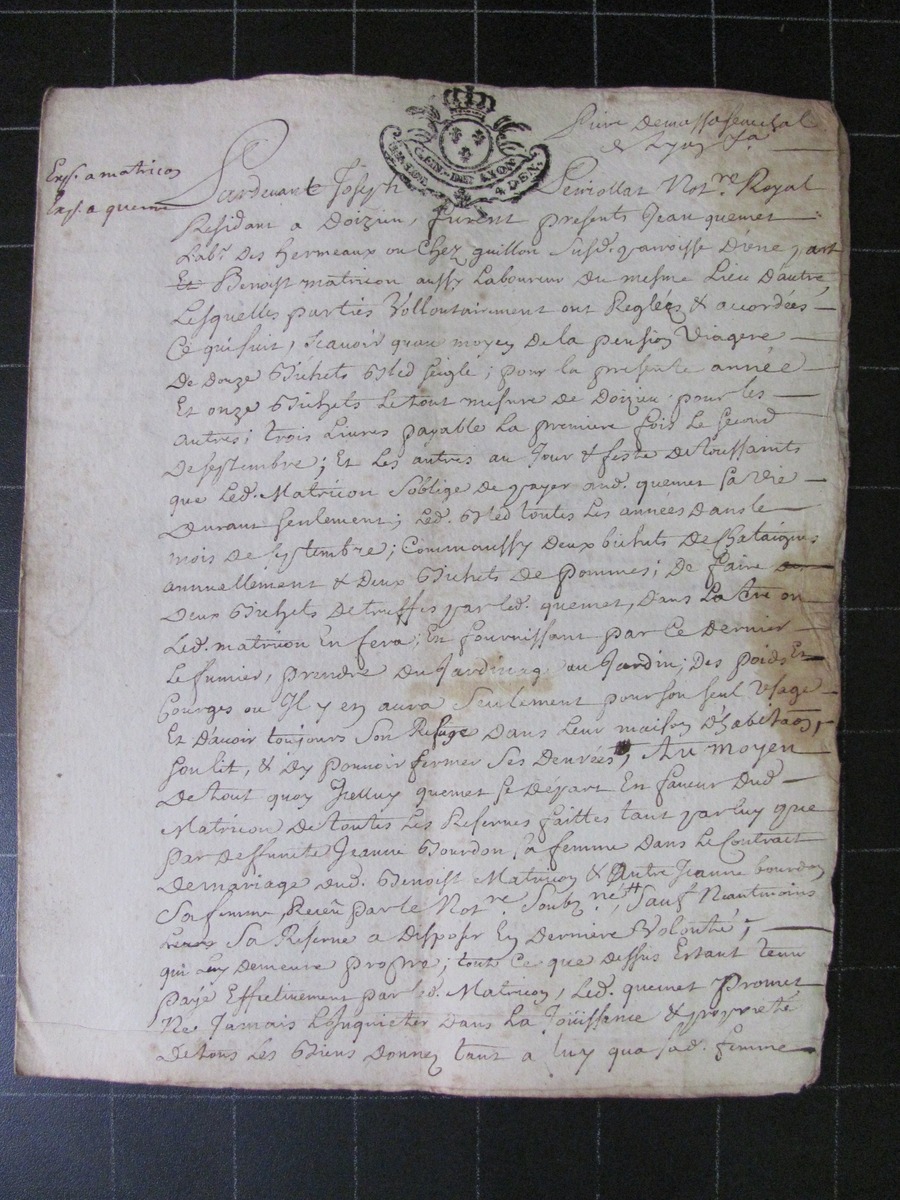 Exp. a matricon
Exp. a quemet
GEN. DE LYON
4 DEN.
de Lyon
Pardevant Joseph Periollat Not.re Royal
Residant a Doizieu, furent presents Jean quemet
Lab.r Des hermeaux ou Chez guillon Susd. parroisse D'une part
Et Benoist matricon aussy Laboureur Du mesme Lieu D'autre,
Lesquelles parties Vollontairement ont Reglees & accordées
Ce qui suit, scavoir qu'au moyen De la pension Viagere
De Douze Bichets Bled seigle; pour la presente année
Et onze Bichets Le tout mesure De Doizieu pour les
autres; trois Livres payable La premiere fois Le Second
De septembre; Et Les autres au Jour & feste De toussaints
que Led. Matricon S'oblige De payer aud. quemet sa Vie
Durant seulement; Led. Bled toutes Les années Dans le
mois de septembre; Comm'aussy Deux bichets De Chataignes
annuellement & Deux Bichets De pommes; De faire
Deux Bichets De truffes par led. quemet, Dans La terre ou
Led. matricon En fera; En fournissant par Ce Dernier
Le fumier, prendre Du Jardinage au Jardin; Des poids Et
Courges ou Il y en aura Seulement pour son seul Usage
Et D'avoir toujours Son Refuge Dans Leur maison D'habitaon,
Son lit, & D'y pouvoir fermer Ses Denrées, Au moyen
De tout quoy Icelluy quemet se Départ En faveur Dud.
Matricon De toutes Les Reserves faittes tant par luy que
par Deffunte Jeanne Bourdon sa femme Dans Le Contract
De mariage Dud. Benoist Matricon & Autre Jeanne bourdon
Sa femme, Receu par Le Not.re Soubz.né, Sauf Neantmoins
Sa Reserve a Disposer En Derniere Volonté;
qui Luy Demeure propre; tout Ce que Dessus Estant tenu
payé Effectivement par led. Matricon, Led. quemet Promet
Ne Jamais L'Inquieter Dans La Joüissance & proprieté
De tous Les Biens Donnez tant a luy qu'a sad. femme